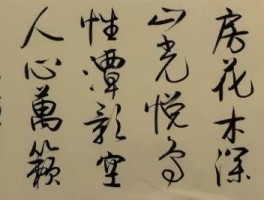 房花木深
山光悦鸟
性潭影空
人心萬籟